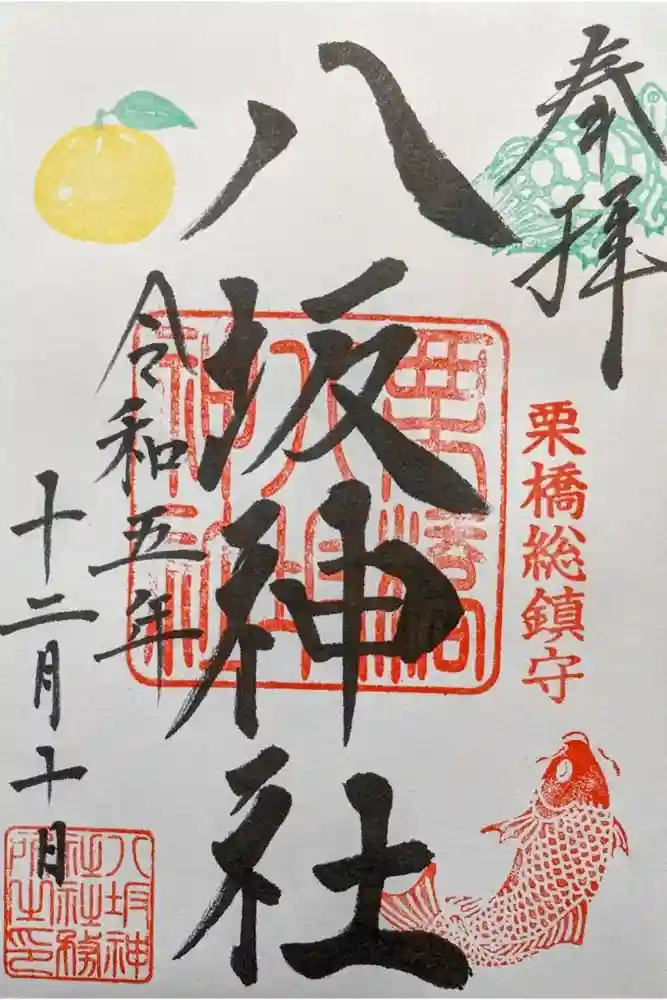 奉拝
栗橋総鎮守
八坂神社
栗橋
八坂
神社
令和五年
十二月十日
八坂神
社社務
所之印